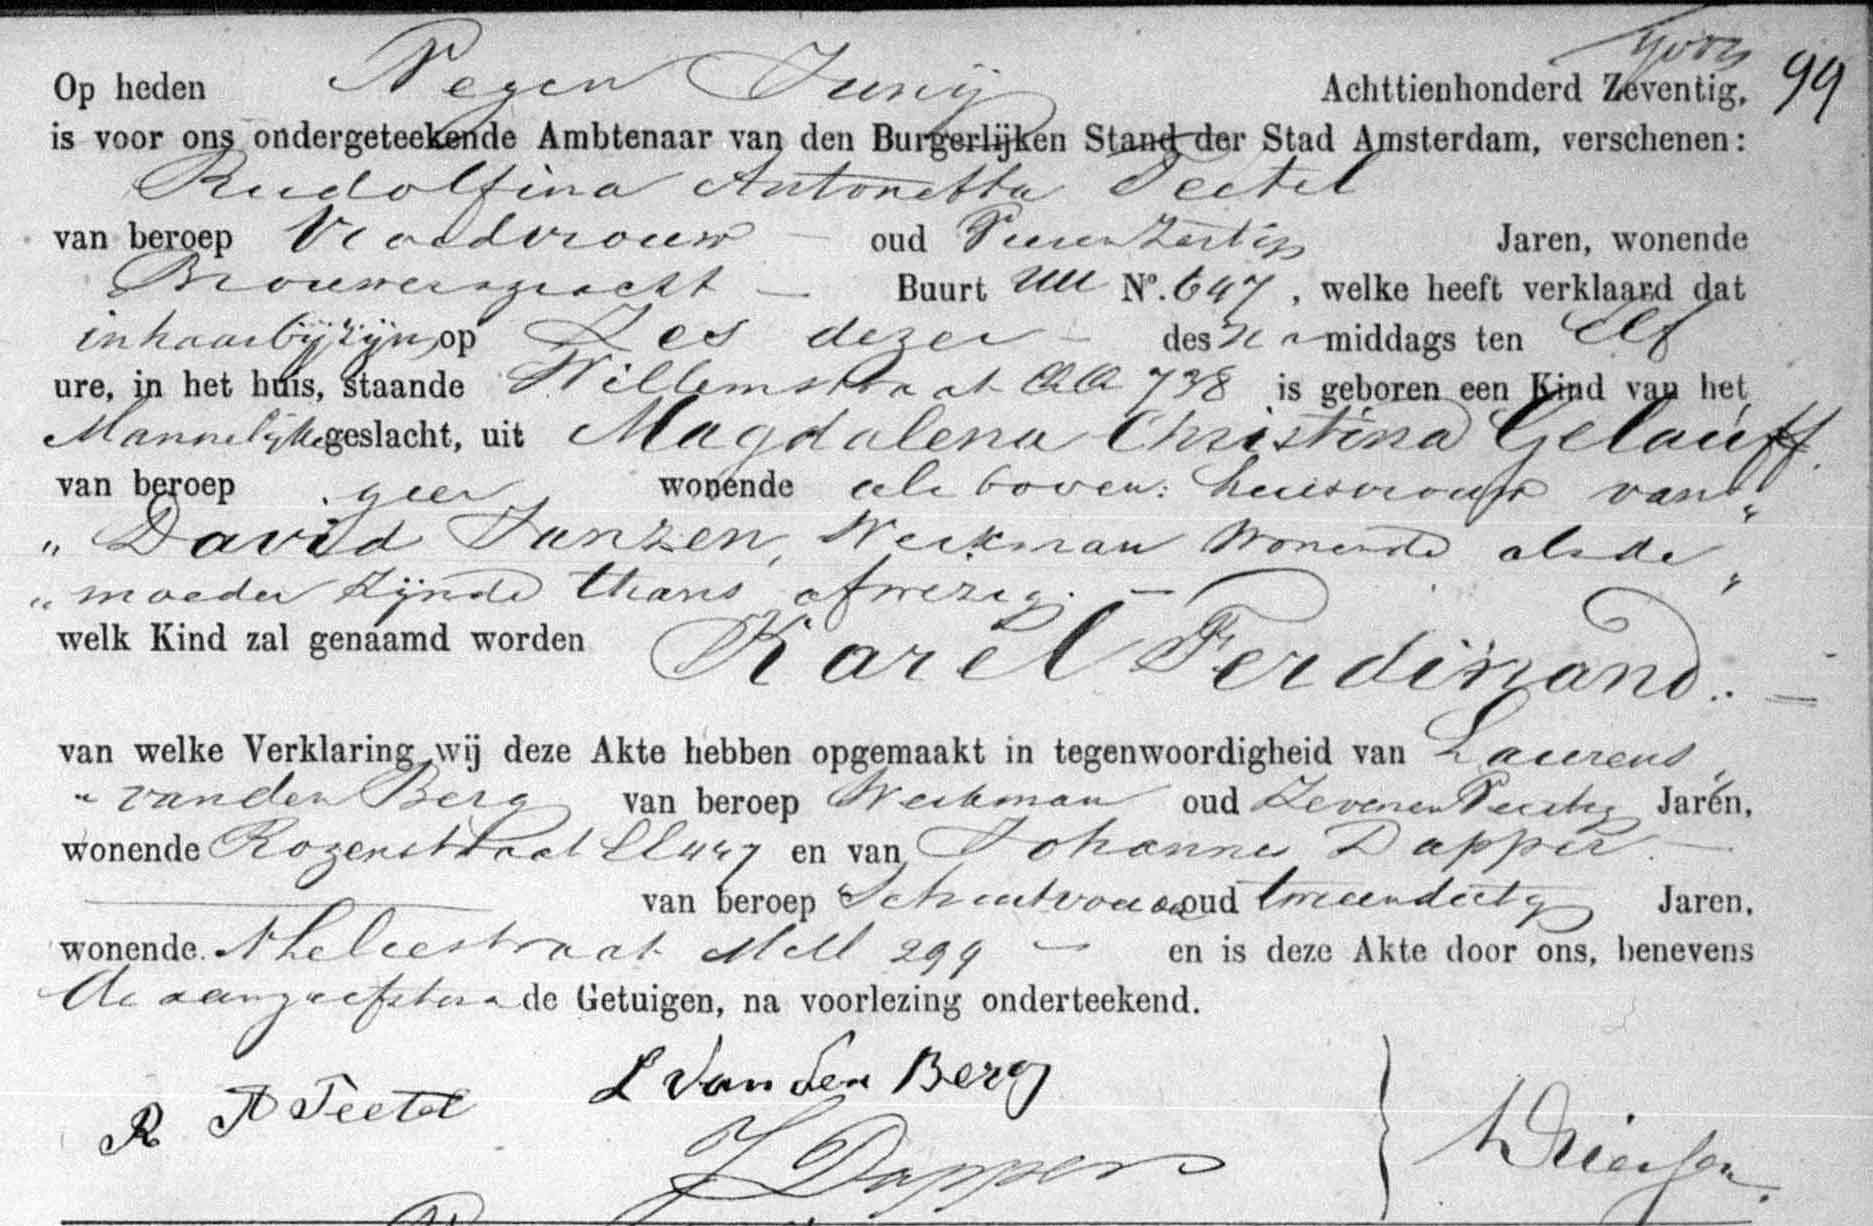 Op heden Negen Junij Achttienhonderd Zeventig, 99
is voor ons ondergeteekende Ambtenaar van den Burgerlijken Stand der Stad Amsterdam, verschenen:
Rudolfina Antonetta Teetel
van beroep Vroedvrouw – oud Jaren, wonende
Brouwersgracht – Buurt UU No. 647, welke heeft verklaard dat
in haar bijzijn, op Zes dezer – des na middags ten Elf
ure, in het huis, staande Willemstraat 738 is geboren een Kind van het
Mannelijke geslacht, uit Magdalena Christina Gelauff.
van beroep geen, wonende als boven: huisvrouw van „
„ David Janzen, Werkman wonende als de „
„ moeder zijnde thans afwezig. – „
welk Kind zal genaamd worden Karel Ferdinand. –
van welke Verklaring wij deze Akte hebben opgemaakt in tegenwoordigheid van Laurens
„ van den Berg van beroep Werkman oud Zevenenveertig Jaren,
wonende Rozenstraat LL 447 en van Johannes Dapper –
van beroep oud tweeendertig Jaren,
wonende straat MM 299 – en is deze Akte door ons, benevens
de aangeefster en de Getuigen, na voorlezing onderteekend.
R A Teetel L Van den Berg
J Dapper